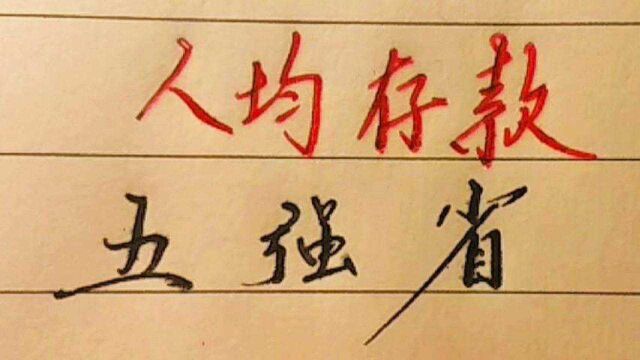 人均存款
五强省